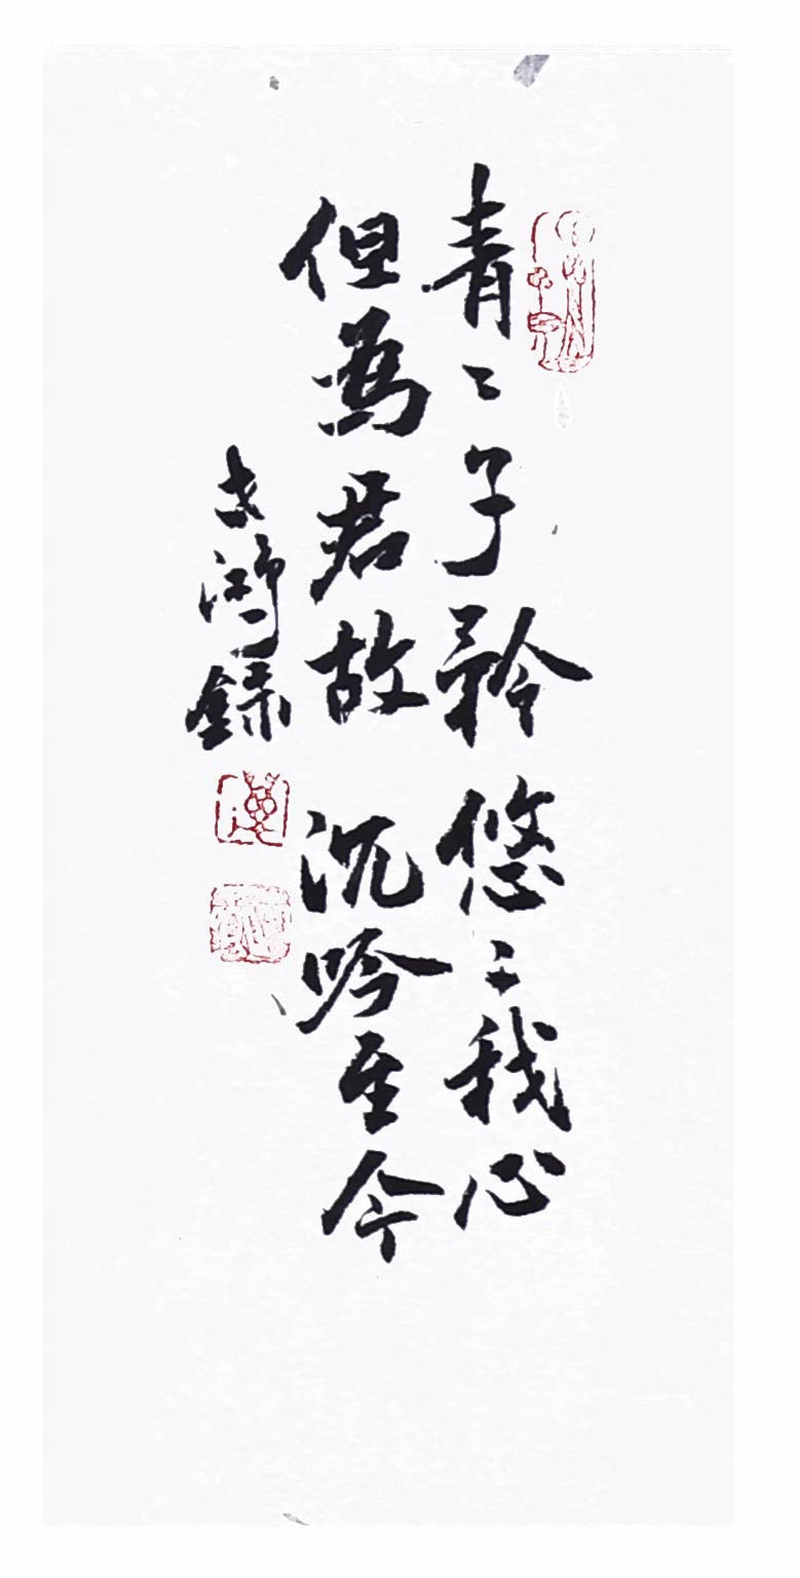 青〻子衿悠〻我心
但為君故沉吟至今
鴻録